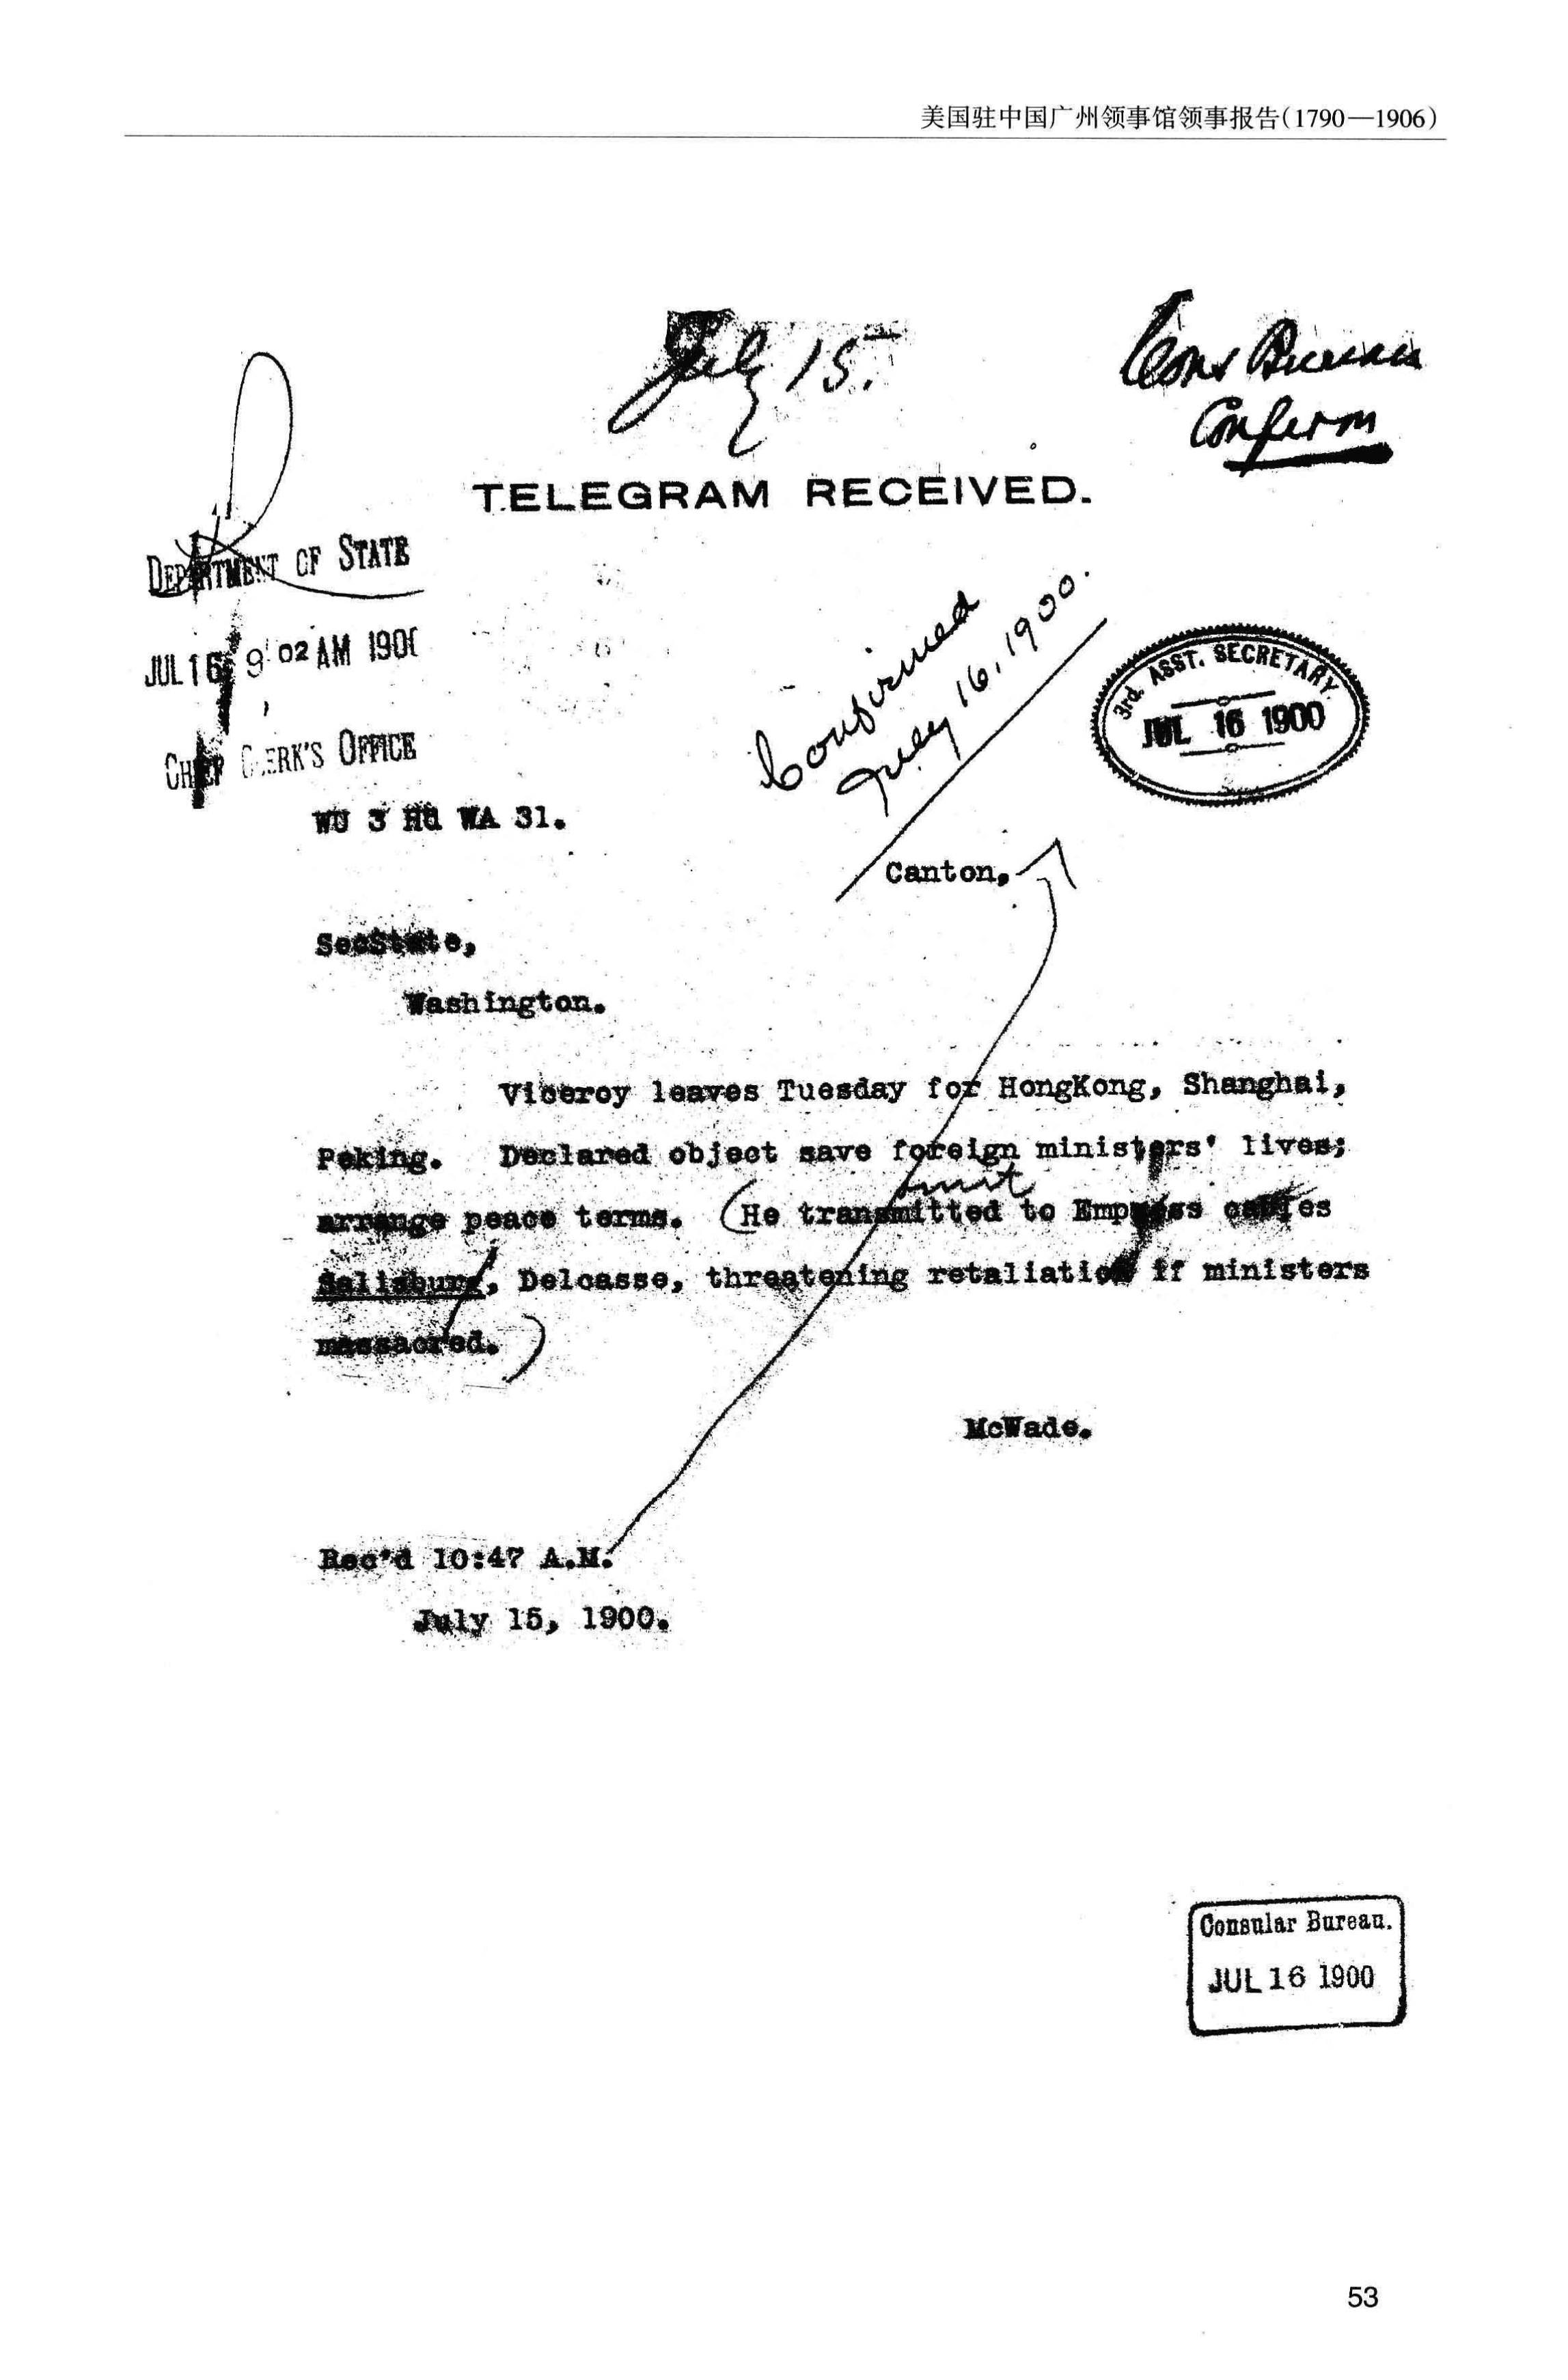 美国驻中国广州领事馆领事报告(1790—1906)
July 15.
Cons Bureau
Confirm
TELEGRAM RECEIVED.
DEPARTMENT OF STATE
JUL 16 9 02 AM 1900
CHIEF CLERK'S OFFICE
Confirmed
July 16, 1900.
3rd. ASST. SECRETARY.
JUL 16 1900
WU 3 HU WA 31.
Canton,
SecState,
Washington.
Viceroy leaves Tuesday for HongKong, Shanghai,
Peking. Declared object save foreign ministers' lives;
omit
arrange peace terms. (He transmitted to Empress cables
Salisbury, Delcasse, threatening retaliation if ministers
massacred.)
McWade.
Rec'd 10:47 A.M.
July 15, 1900.
Consular Bureau.
JUL 16 1900
53